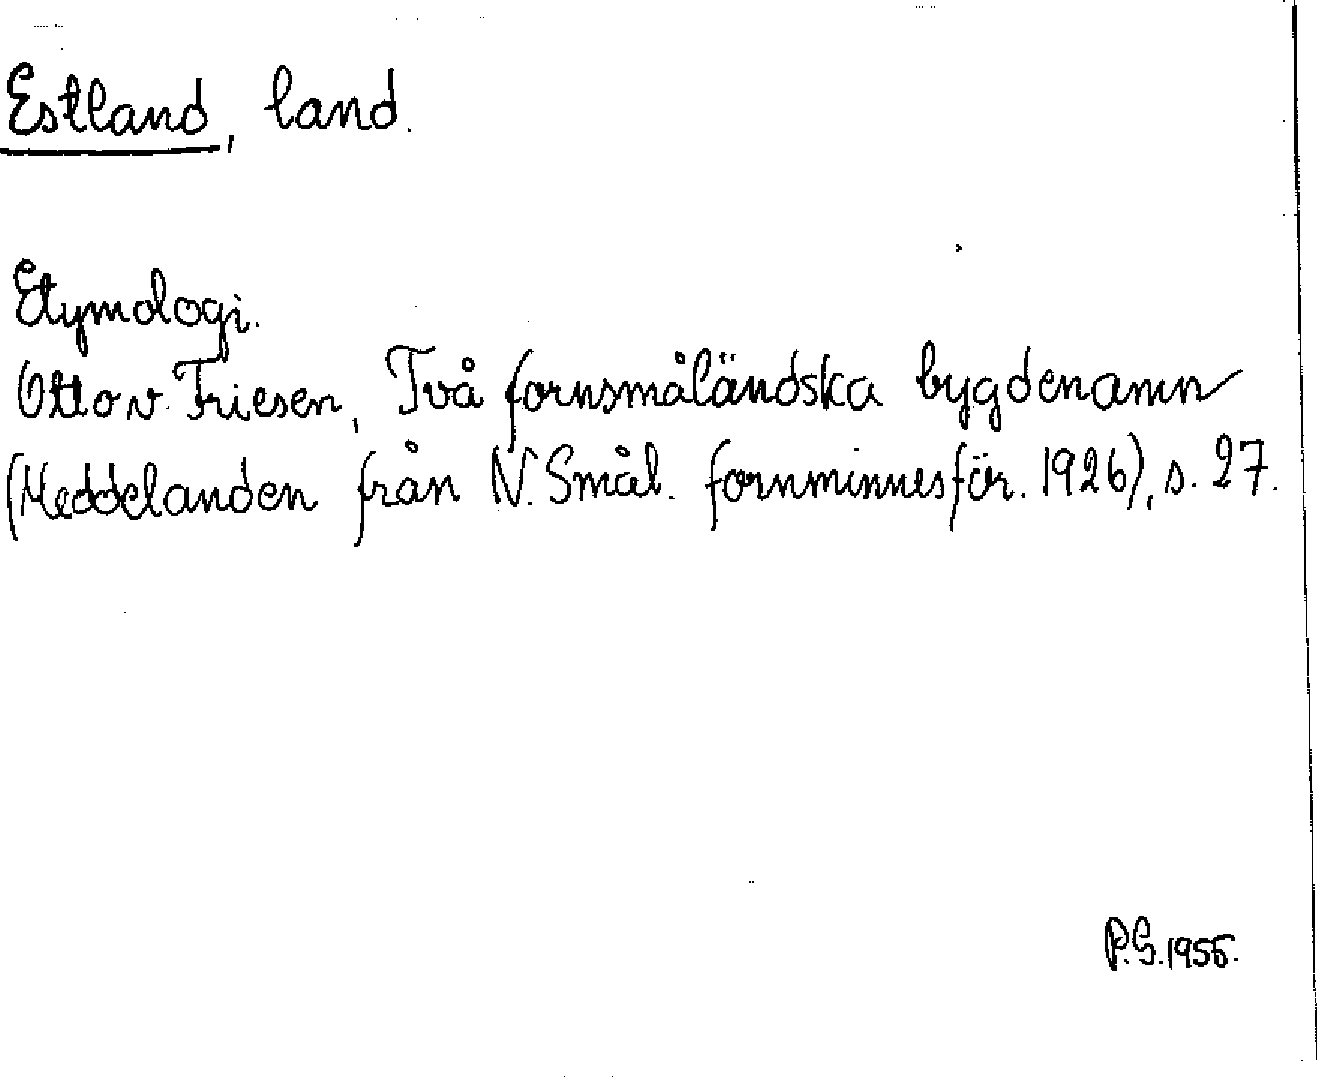 Estland, land.
Etymologi.
Otto v. Friesen, Två fornsmåländska bygdenamn
(Meddelanden från N. Smål. fornminnesför. 1926), s. 27.
P.S. 1955.